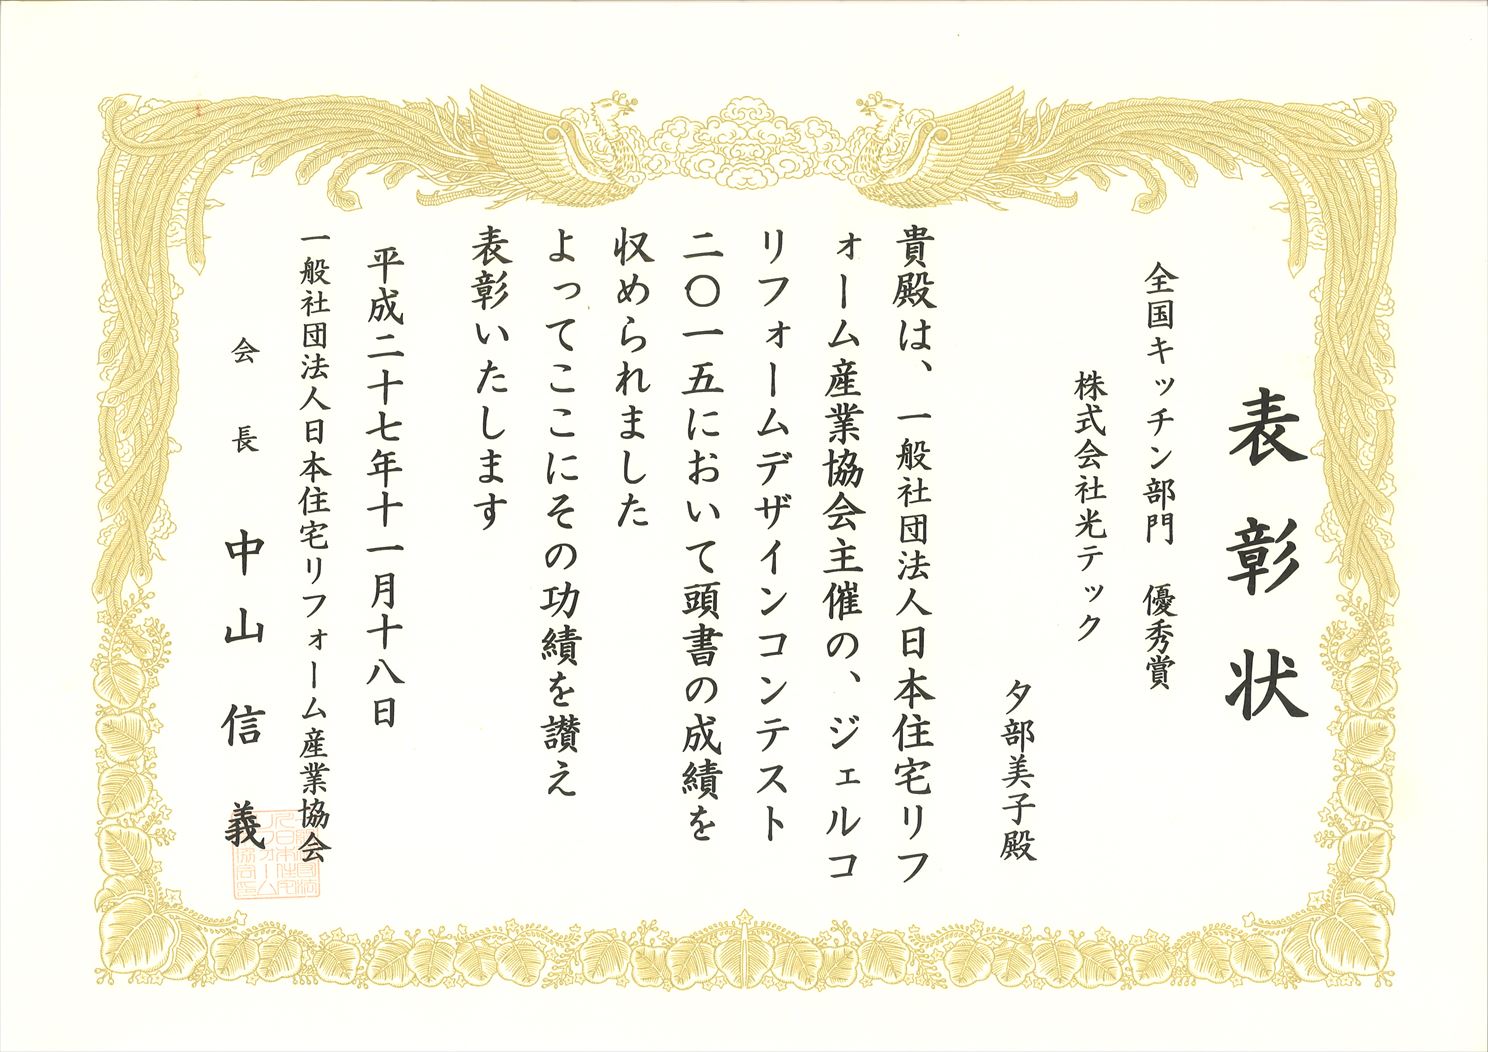 表彰状
全国キッチン部門　優秀賞
株式会社光テック
夕部美子殿
貴殿は、一般社団法人日本住宅リフ
ォーム産業協会主催の、ジェルコ
リフォームデザインコンテスト
二〇一五において頭書の成績を
収められました
よってここにその功績を讃え
表彰いたします
平成二十七年十一月十八日
一般社団法人日本住宅リフォーム産業協会
会長　中山信義